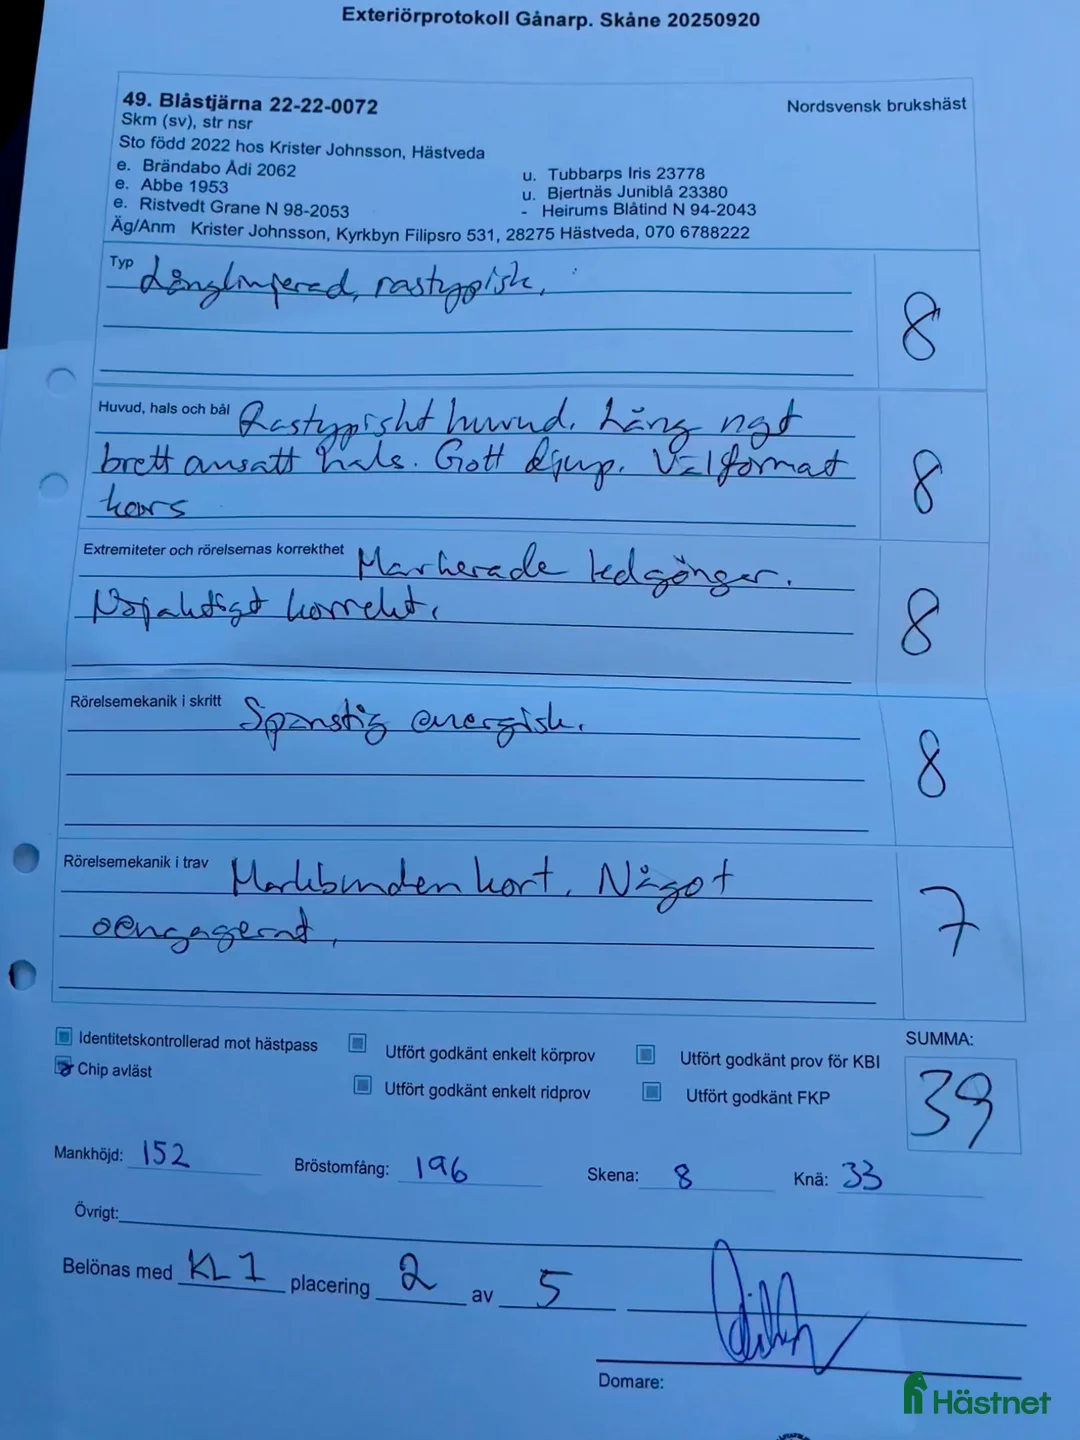 Exteriörprotokoll Gånarp. Skåne 20250920
49. Blåstjärna 22-22-0072
Nordsvensk brukshäst
Skm (sv), str nsr
Sto född 2022 hos Krister Johnsson, Hästveda
e. Brändabo Ådi 2062
u. Tubbarps Iris 23778
e. Abbe 1953
u. Bjertnäs Juniblå 23380
e. Ristvedt Grane N 98-2053
- Heirums Blåtind N 94-2043
Äg/Anm Krister Johnsson, Kyrkbyn Filipsro 531, 28275 Hästveda, 070 6788222
Typ Långlinjerad, rastypisk.
8
Huvud, hals och bål Rastypiskt huvud. Lång ngt
brett ansatt hals. Gott djup. Välformat
kors
8
Extremiteter och rörelsernas korrekthet Markerade ledgångar.
Nöjaktigt korrekt.
8
Rörelsemekanik i skritt Spänstig energisk.
8
Rörelsemekanik i trav Markbunden kort. Något
oengagerad.
7
Identitetskontrollerad mot hästpass
Utfört godkänt enkelt körprov
Utfört godkänt prov för KBI
SUMMA:
Chip avläst
Utfört godkänt enkelt ridprov
Utfört godkänt FKP
39
Mankhöjd: 152
Bröstomfång: 196
Skena: 8
Knä: 33
Övrigt:
Belönas med KL 1 placering 2 av 5
Domare:
Hästnet